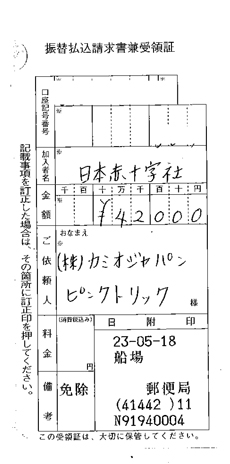 振替払込請求書兼受領証
口座記号番号
加入者名
日本赤十字社
金額
千 百 十 万 千 百 十 円
¥42000
ご依頼人
おなまえ
(株)カミオジャパン
ピンクトリック
様
料金
(消費税込み)
円
日附印
23-05-18
船場
備考
免除
郵便局
(41442)11
N91940004
記載事項を訂正した場合は、その箇所に訂正印を押してください。
この受領証は、大切に保管してください。